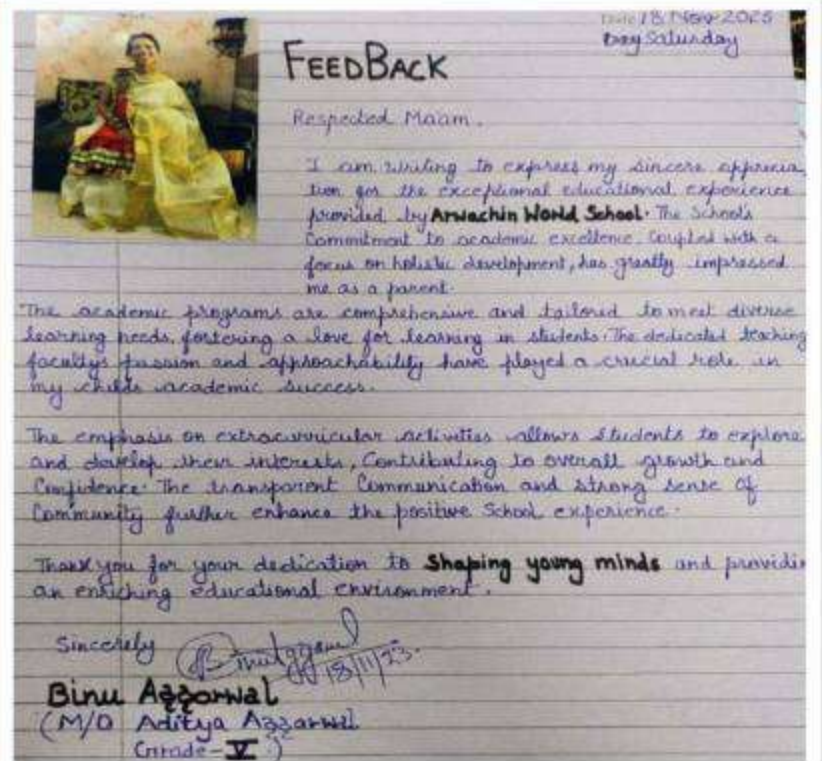 Date 18 Nov 2023
Day Saturday
FEEDBACK
Respected Ma'am.
I am writing to express my sincere apprecia
tion for the exceptional educational experience
provided by Arwachin World School. The School's
Commitment to academic excellence, Coupled with a
focus on holistic development, has greatly impressed
me as a parent.
The academic programs are comprehensive and tailored to meet diverse
learning needs, fostering a love for learning in students. The dedicated teaching
faculty's passion and approachability have played a crucial role in
my child's academic success.
The emphasis on extracurricular activities allows students to explore
and develop their interests, Contributing to overall growth and
Confidence. The transparent Communication and strong sense of
Community further enhance the positive School experience.
Thank you for your dedication to Shaping young minds and providin
an enriching educational environment.
Sincerely
18/11/23.
Binu Aggarwal
(M/O Aditya Aggarwal
Grade-V)